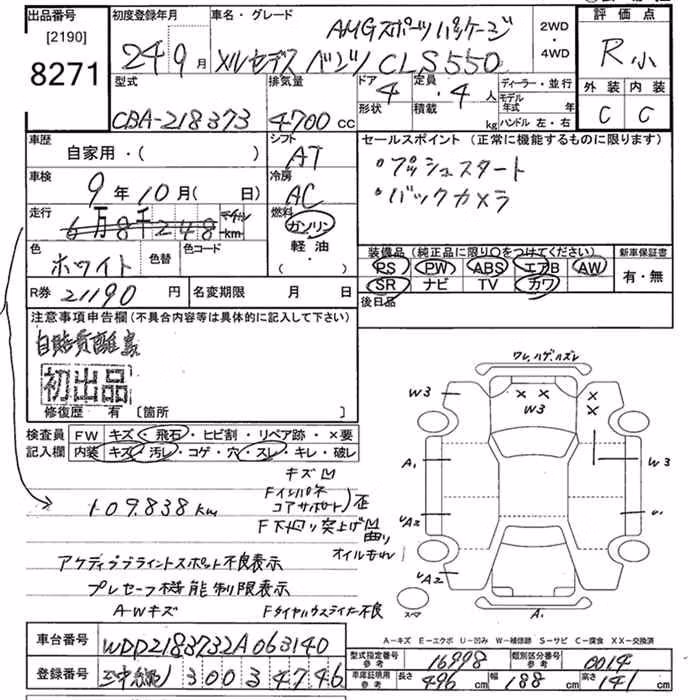 出品番号 初度登録年月 車名・グレード 2WD・4WD 評価点
[2190] AMGスポーツパッケージ
8271 24 9月 メルセデス ベンツ CLS550 R小
型式 排気量 ドア 4 定員 ・4人 ディーラー・並行 外装 内装
CBA-218373 4700cc 形状 積載 kg モデル年式 年 ハンドル 左・右 C C
車歴 シフト セールスポイント (正常に機能するものに限ります)
自家用・( ) AT ・プッシュスタート
車検 9年10月( 日) 冷房 AC ・バックカメラ
走行 6万8千248 km 燃料 ガソリン
色 ホワイト 色替 色コード 軽・油 ( ・ )
装備品 (純正品に限り○をつけてください) 新車保証書
PS PW ABS エアB AW 有・無
SR ナビ TV カワ
R券 21190円 名変期限 月 日 後日品
注意事項申告欄(不具合内容等は具体的に記入して下さい)
初出品
修復歴 有 [箇所 ]
ワレ,ハゲ,ズレ
W3 W3
A1 W3
A2
A2
スペア A1
検査員 FW キズ・飛石・ヒビ割・リペア跡・×要
記入欄 内装 キズ・汚レ・コゲ・穴・スレ・キレ・破レ
キズ凹
109.838km Fインパネ
コアサポート 歪
F下廻り突上げ凹
曲り
オイルもれ
アクティブブラインドスポット不良表示
プレセーフ機能制限表示
A-Wキズ
A-キズ E-エクボ U-凹み W-補修跡 S-サビ C-腐食 XX-交換済
車台番号 WDD2183732A063140
型式指定番号 参考 16998 類別区分番号 参考 0014
登録番号 300 3 4746
車庫証明用 参考 長さ 496cm 幅 188cm 高さ 141cm